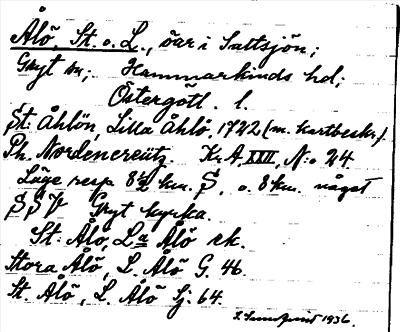 Ålö, St. o. L., öar i Saltsjön;
Gryt sn; Hammarkinds hd;
Östergötl. l.
St. Åhlön, Lilla Åhlö, 1722 (m. kartbeskr.)
Ph. Nordencreütz. K. A. XXII, N:o 24
Läge resp 8½ km. S, o. 8 km. något
SSV Gryt kyrka.
St. Ålö, La Ålö ek.
Stora Ålö, L. Ålö G. 46.
St. Ålö, L. Ålö Sj: 64.
1936.